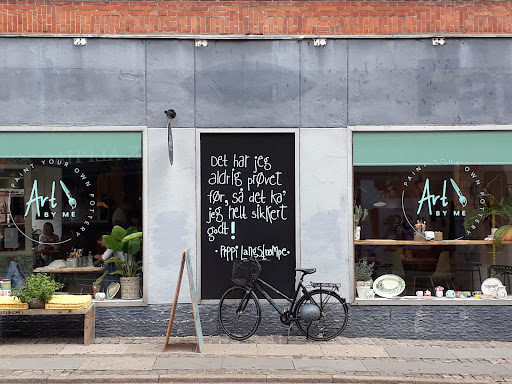 PAINT YOUR OWN POTTERY
Art
BY ME
Det har jeg
aldrig prøvet
før, så det ka'
jeg helt sikkert
godt!
• Pippi Langstrømpe •
PAINT YOUR OWN POTTERY
Art
BY ME